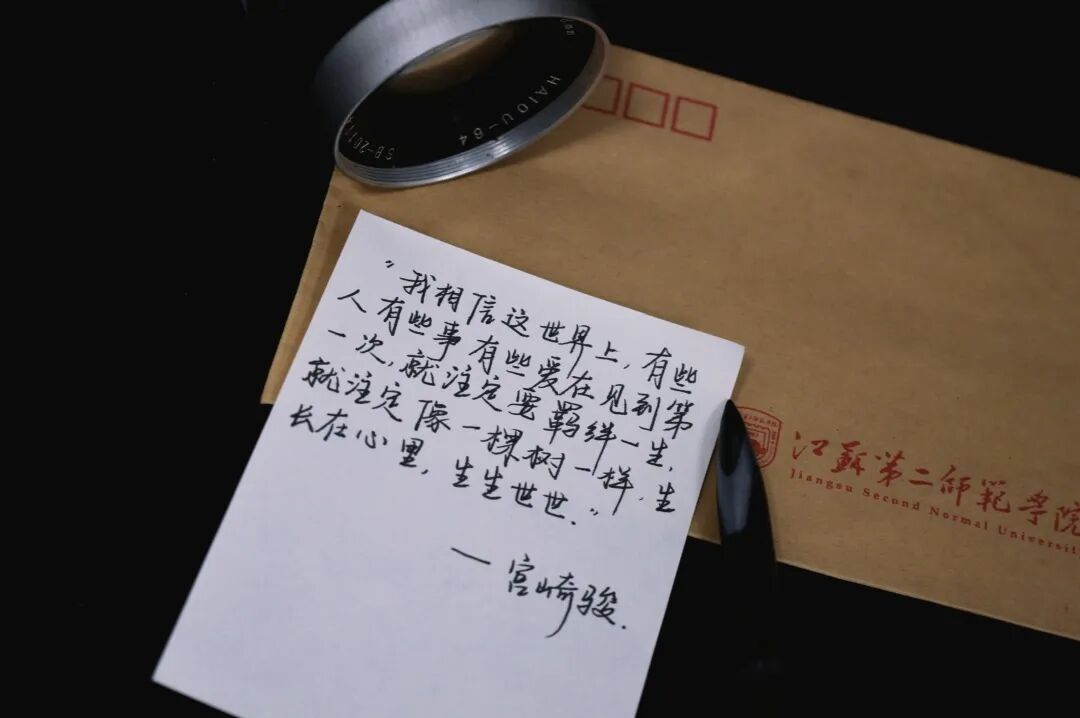 HAIOU-64
“我相信这世界上，有些
人有些事有些爱在见到第
一次，就注定要羁绊一生，
就注定像一棵树一样，生
长在心里，生生世世.”
—宫崎骏.
江苏第二师范学院
Jiangsu Second Normal Universit